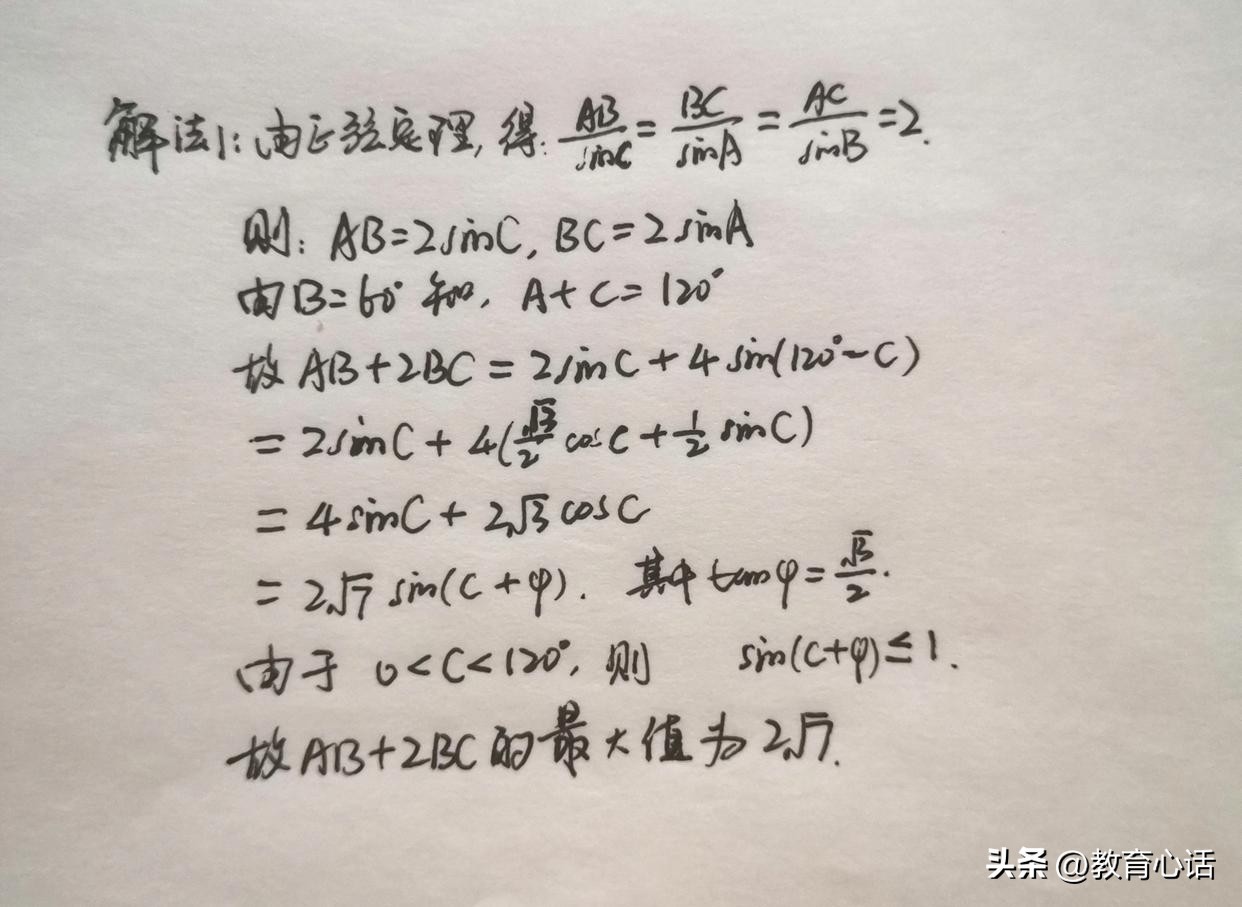 解法1:由正弦定理,得:AB/sinC=BC/sinA=AC/sinB=2.
则:AB=2sinC,BC=2sinA
由B=60°知,A+C=120°
故AB+2BC=2sinC+4sin(120°-C)
=2sinC+4(√3/2cosC+1/2sinC)
=4sinC+2√3cosC
=2√7sin(C+φ).其中tanφ=√3/2.
由于0<C<120°,则 sin(C+φ)≤1.
故AB+2BC的最大值为2√7.
头条@教育心话